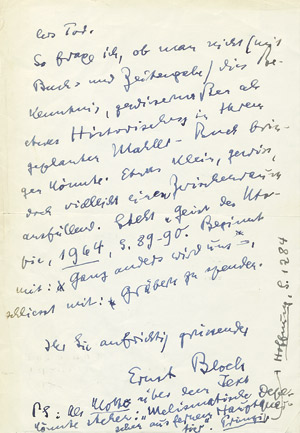 los Tod.
So frage ich, ob man nicht (mit
Buch- und Zeitangabe) dies Be-
kenntnis, gewissermaßen als
etwas Historisches in Ihrem
geplanten Mahler-Buch brin-
gen könnte. Etwas klein, gewiss,
doch vielleicht einen Zwischenraum
ausfüllend. Steht "Geist der Uto-
pie, 1964, S. 89-90. Beginnt
mit: * Ganz anders wird uns *,
schliesst mit: * Gräbern zu spenden.
Ihr Sie aufrichtig grüssender
Ernst Bloch
PS: Als Motto über dem Text
könnte stehen: "Melismatische
schen aus fernem
für". Prinzip
Hoffnung, S. 1284